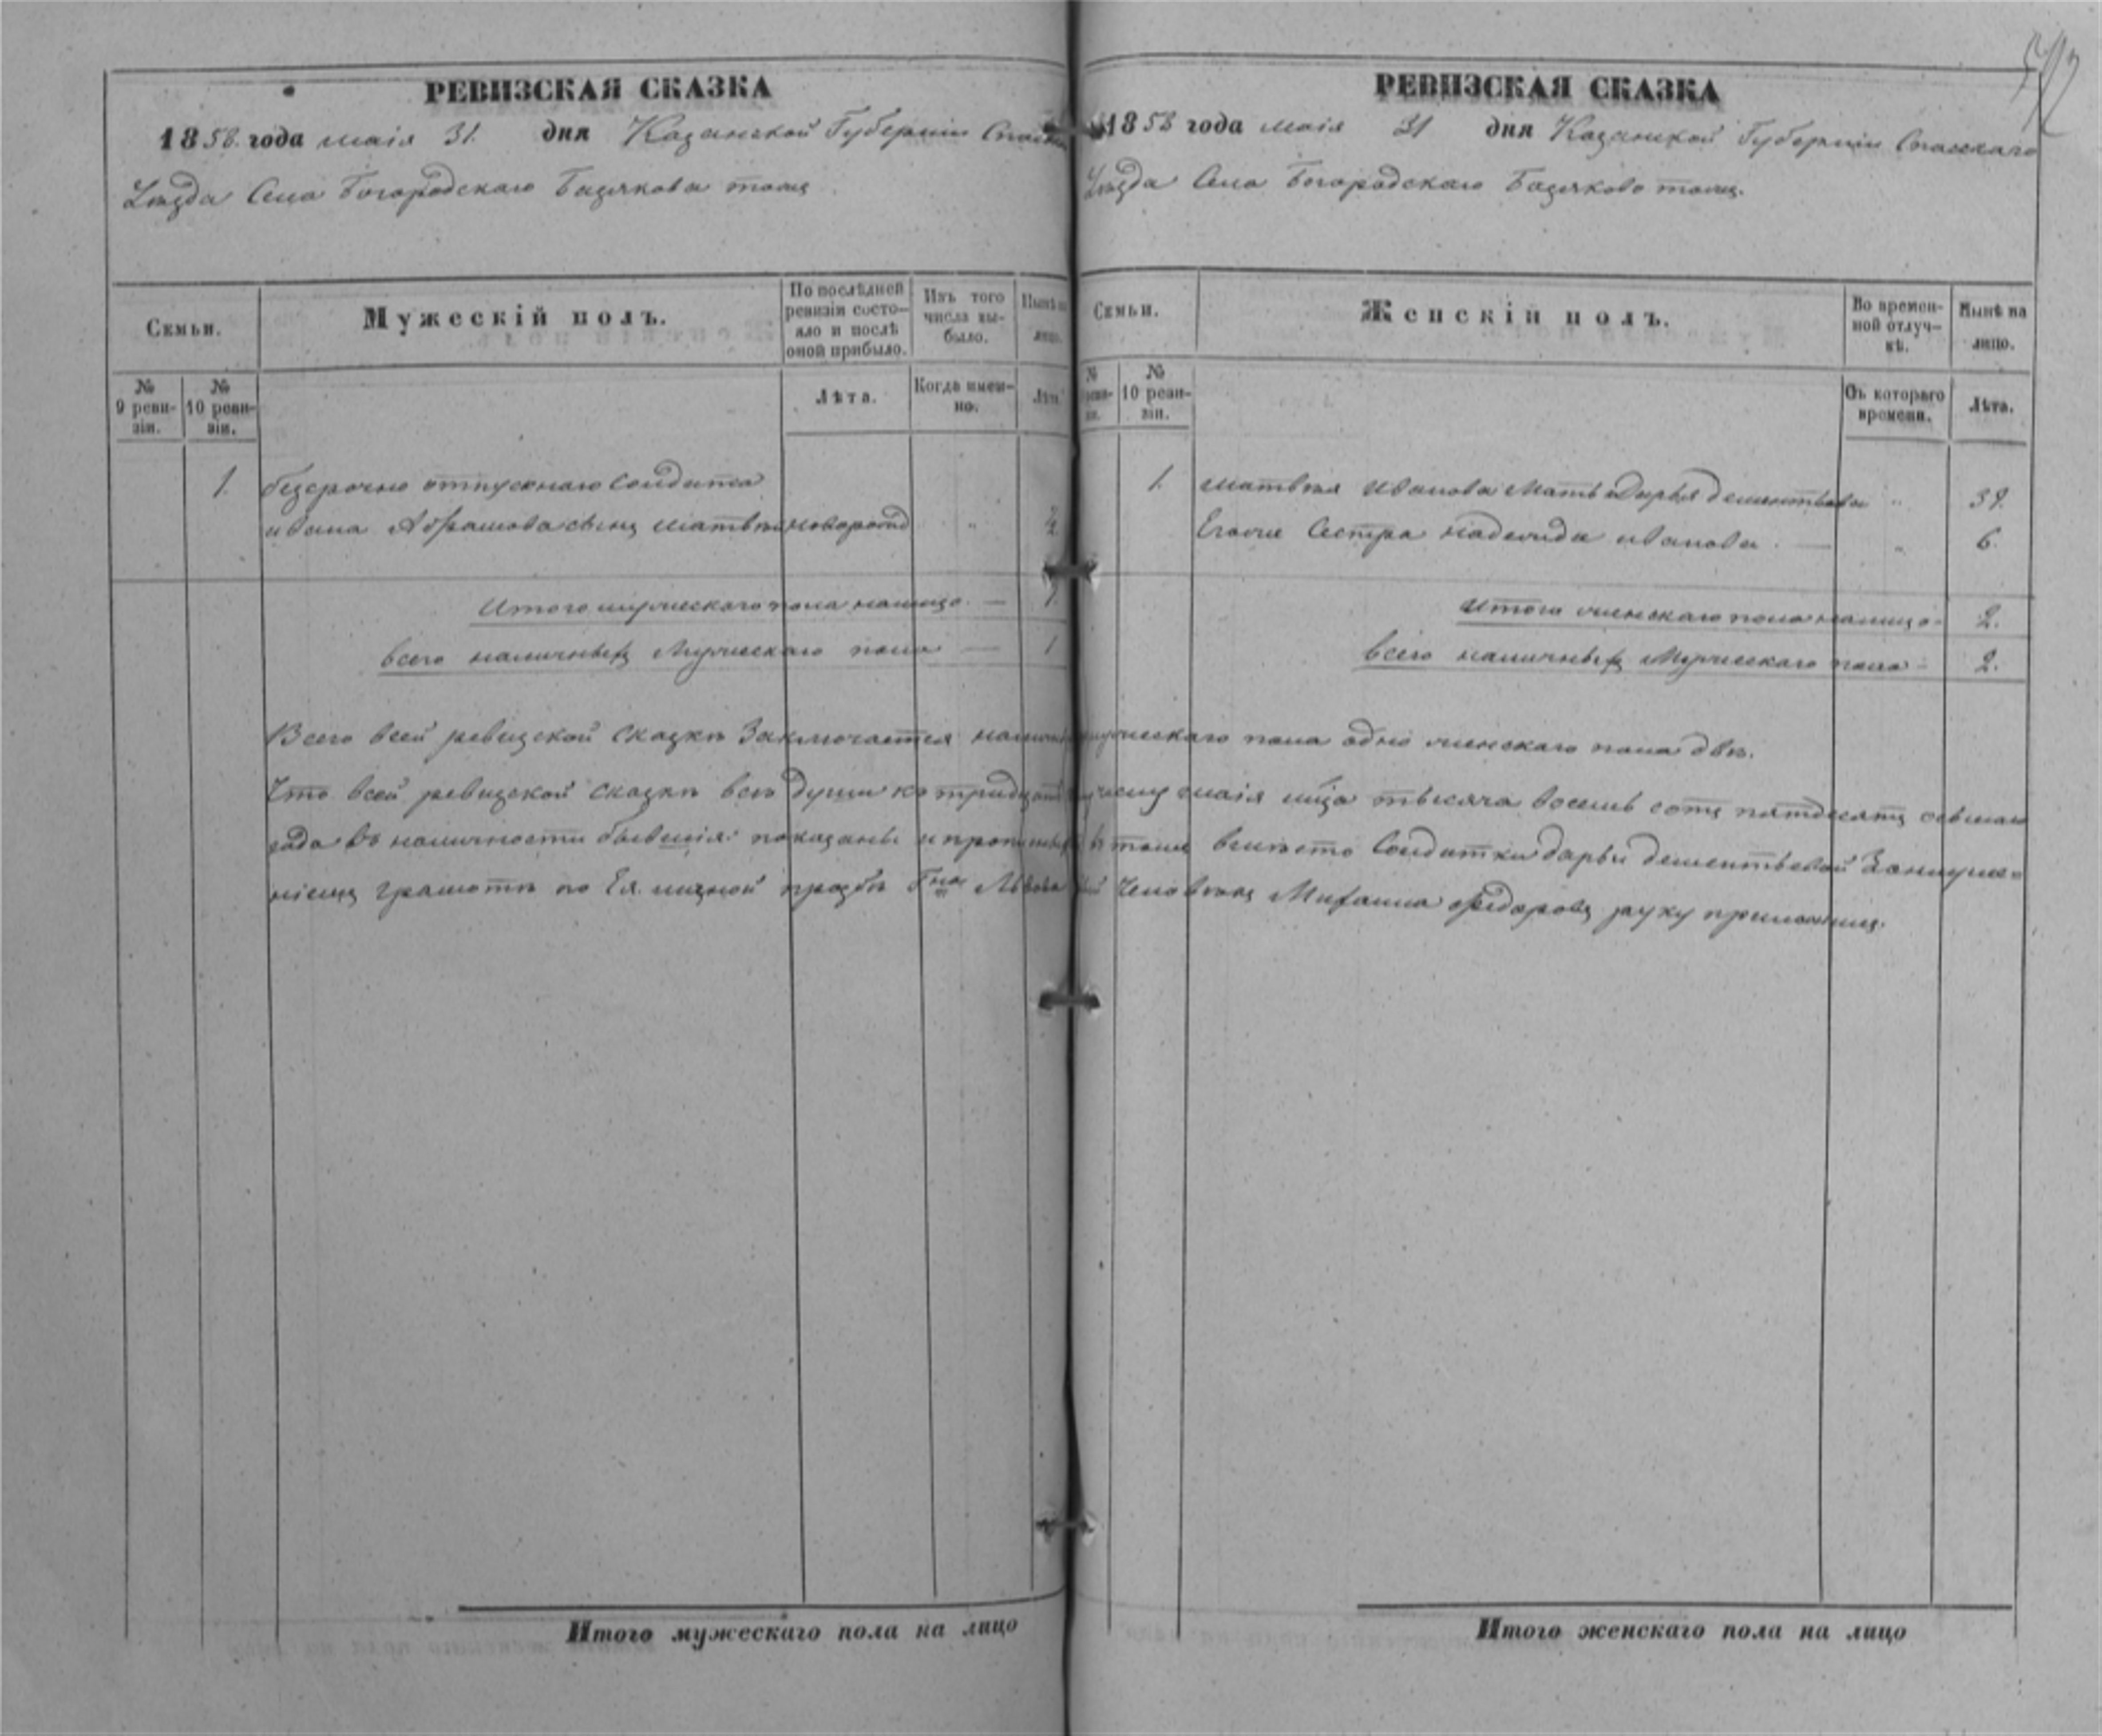 РЕВИЗСКАЯ СКАЗКА
1858. года маія 31. дня Казанской Губерніи
Уѣзда Села Богородскаго Базякова тожъ
Семьи.
Мужескій полъ.
По послѣдней ревизіи состояло и послѣ оной прибыло.
Изъ того числа выбыло.
Нынѣ на лицо.
№ 9 ревизіи.
№ 10 ревизіи.
Лѣта.
Когда именно.
Лѣта.
1. безсрочно отпускнаго солдата
ивана Абрамова сынъ матвѣй новорожд "
Итого мужескаго пола налицо — 1.
всего наличныхъ Мужескаго пола — 1
РЕВИЗСКАЯ СКАЗКА
1858 года маія 31 дня Казанской Губерніи Спасскаго
Уѣзда Села Богородскаго Базяково тожъ.
Семьи.
Женскій полъ.
Во временной отлучкѣ.
Нынѣ на лицо.
№ ревизіи.
№ 10 ревизіи.
Съ котораго времени.
Лѣта.
1. матвѣя иванова Мать Дарья дементьева "
Егоже Сестра надежда иванова. — " 6.
итого женскаго пола налицо - 2.
всего наличныхъ Мужескаго пола - 2.
Всего всей ревизской сказкѣ Заключается мужескаго пола одно женскаго пола двѣ.
Что всей ревизской сказкѣ всѣ души къ маія тысяча восемь сотъ пятдесятъ осьмаго
года въ наличности бывшія показаны и въ томъ вмѣсто Солдатки дарьи дементьевой
грамотѣ по Ея личной прозбѣ Человѣкъ Михаила Федоровъ руку приложилъ.
Итого мужескаго пола на лицо
Итого женскаго пола на лицо